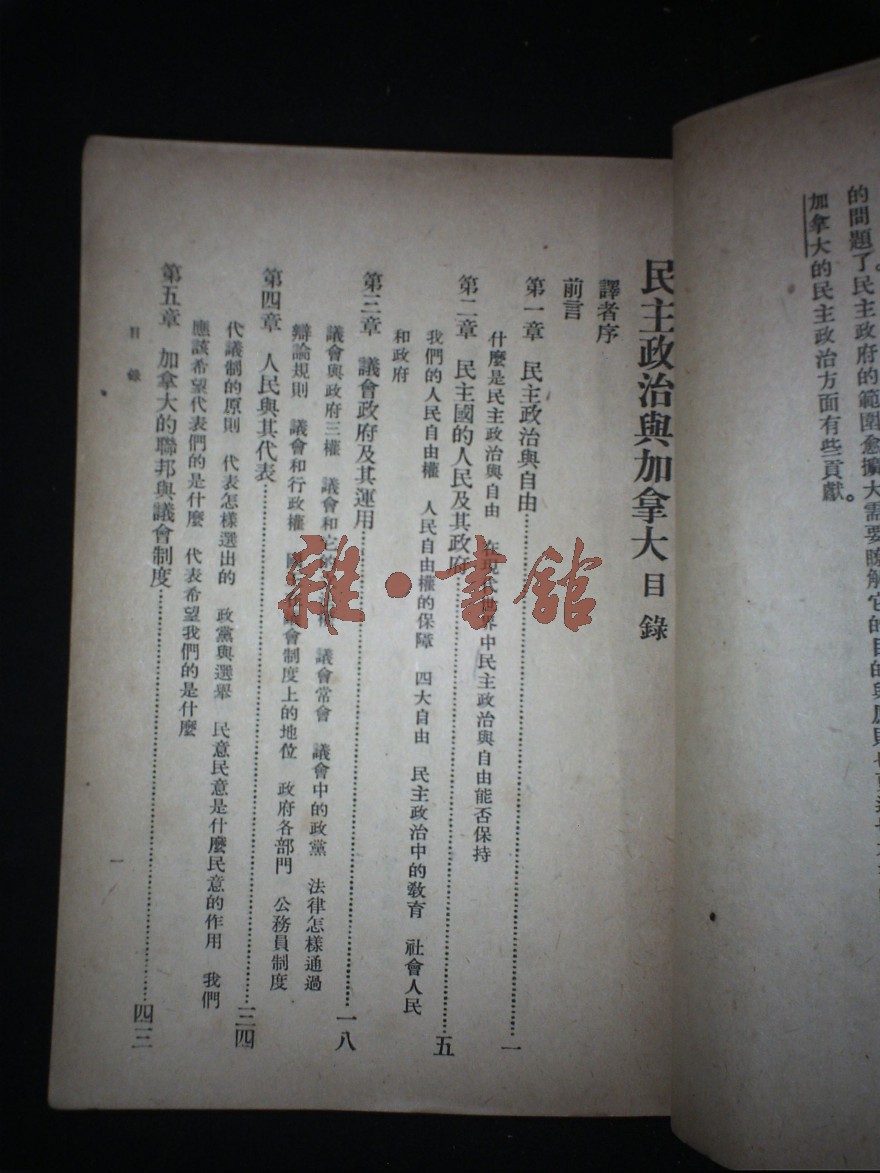 的問題了。民主政府的範圍愈擴大需要瞭解它的目的與原則
加拿大的民主政治方面有些貢獻。
民主政治與加拿大 目錄
譯者序
前言
第一章 民主政治與自由 一
什麼是民主政治與自由 在現 世界中民主政治與自由能否保持
第二章 民主國的人民及其政府 五
我們的人民自由權 人民自由權的保障 四大自由 民主政治中的教育 社會人民
和政府
第三章 議會政府及其運用 一八
議會與政府三權 議會和它的 議會常會 議會中的政黨 法律怎樣通過
辯論規則 議會和行政權 會制度上的地位 政府各部門 公務員制度
第四章 人民與其代表 三四
代議制的原則 代表怎樣選出的 政黨與選舉 民意民意是什麼民意的作用 我們
應該希望代表們的是什麼 代表希望我們的是什麼
第五章 加拿大的聯邦與議會制度 四三
目錄
一
雜·書館